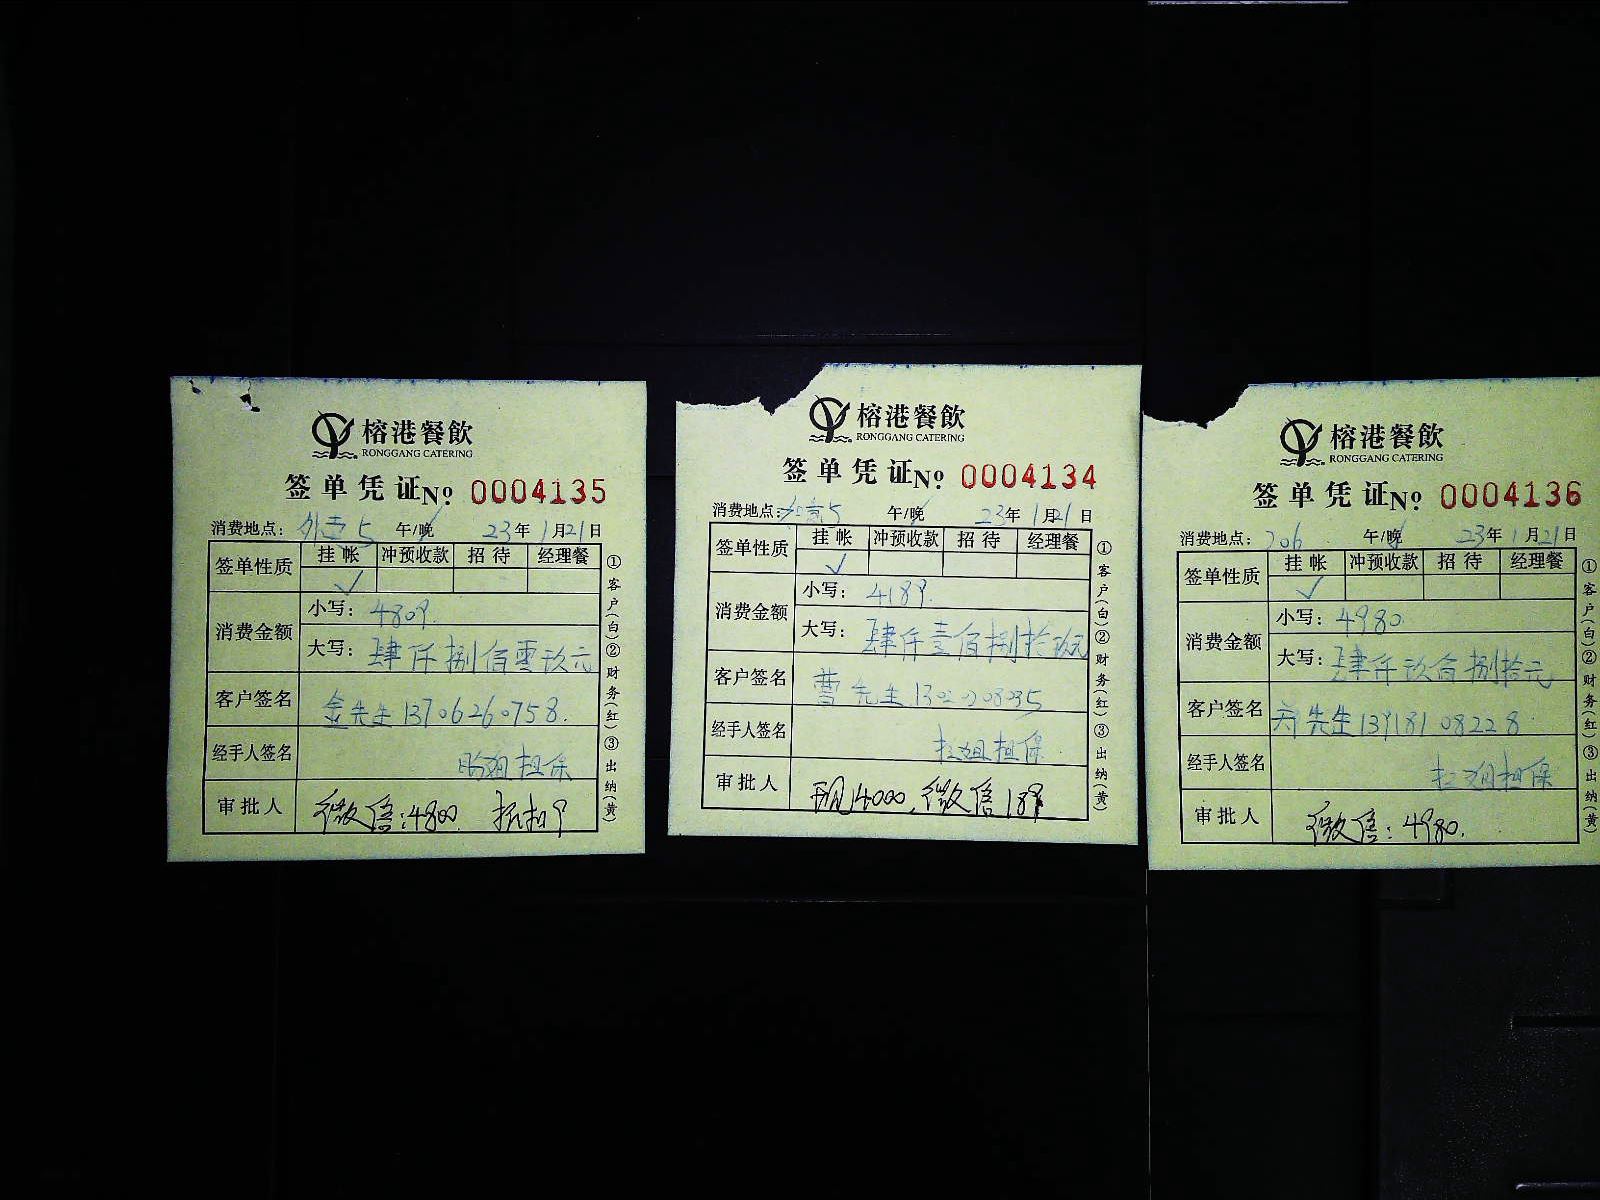 榕港餐飲
RONGGANG CATERING
签单凭证 No 0004135
消费地点：外卖5 午/晚 23年1月21日
签单性质 挂帐 冲预收款 招待 经理餐
✓
消费金额 小写：4809.
大写：肆仟捌佰零玖元
客户签名 金先生 13706260758.
经手人签名 姐担保
审批人 微信：4800. 抵扣9
①客户(白)②财务(红)③出纳(黄)
榕港餐飲
RONGGANG CATERING
签单凭证 No 0004134
消费地点：5 午/晚 23年1月21日
签单性质 挂帐 冲预收款 招待 经理餐
✓
消费金额 小写：4189.
大写：肆仟壹佰捌拾玖元
客户签名 曹先生
经手人签名 姐担保
审批人 现14000，微信189
①客户(白)②财务(红)③出纳(黄)
榕港餐飲
RONGGANG CATERING
签单凭证 No 0004136
消费地点：706 午/晚 23年1月21日
签单性质 挂帐 冲预收款 招待 经理餐
✓
消费金额 小写：4980.
大写：肆仟玖佰捌拾元
客户签名 先生 13918108228
经手人签名 姐担保
审批人 微信：4980.
①客户(白)②财务(红)③出纳(黄)